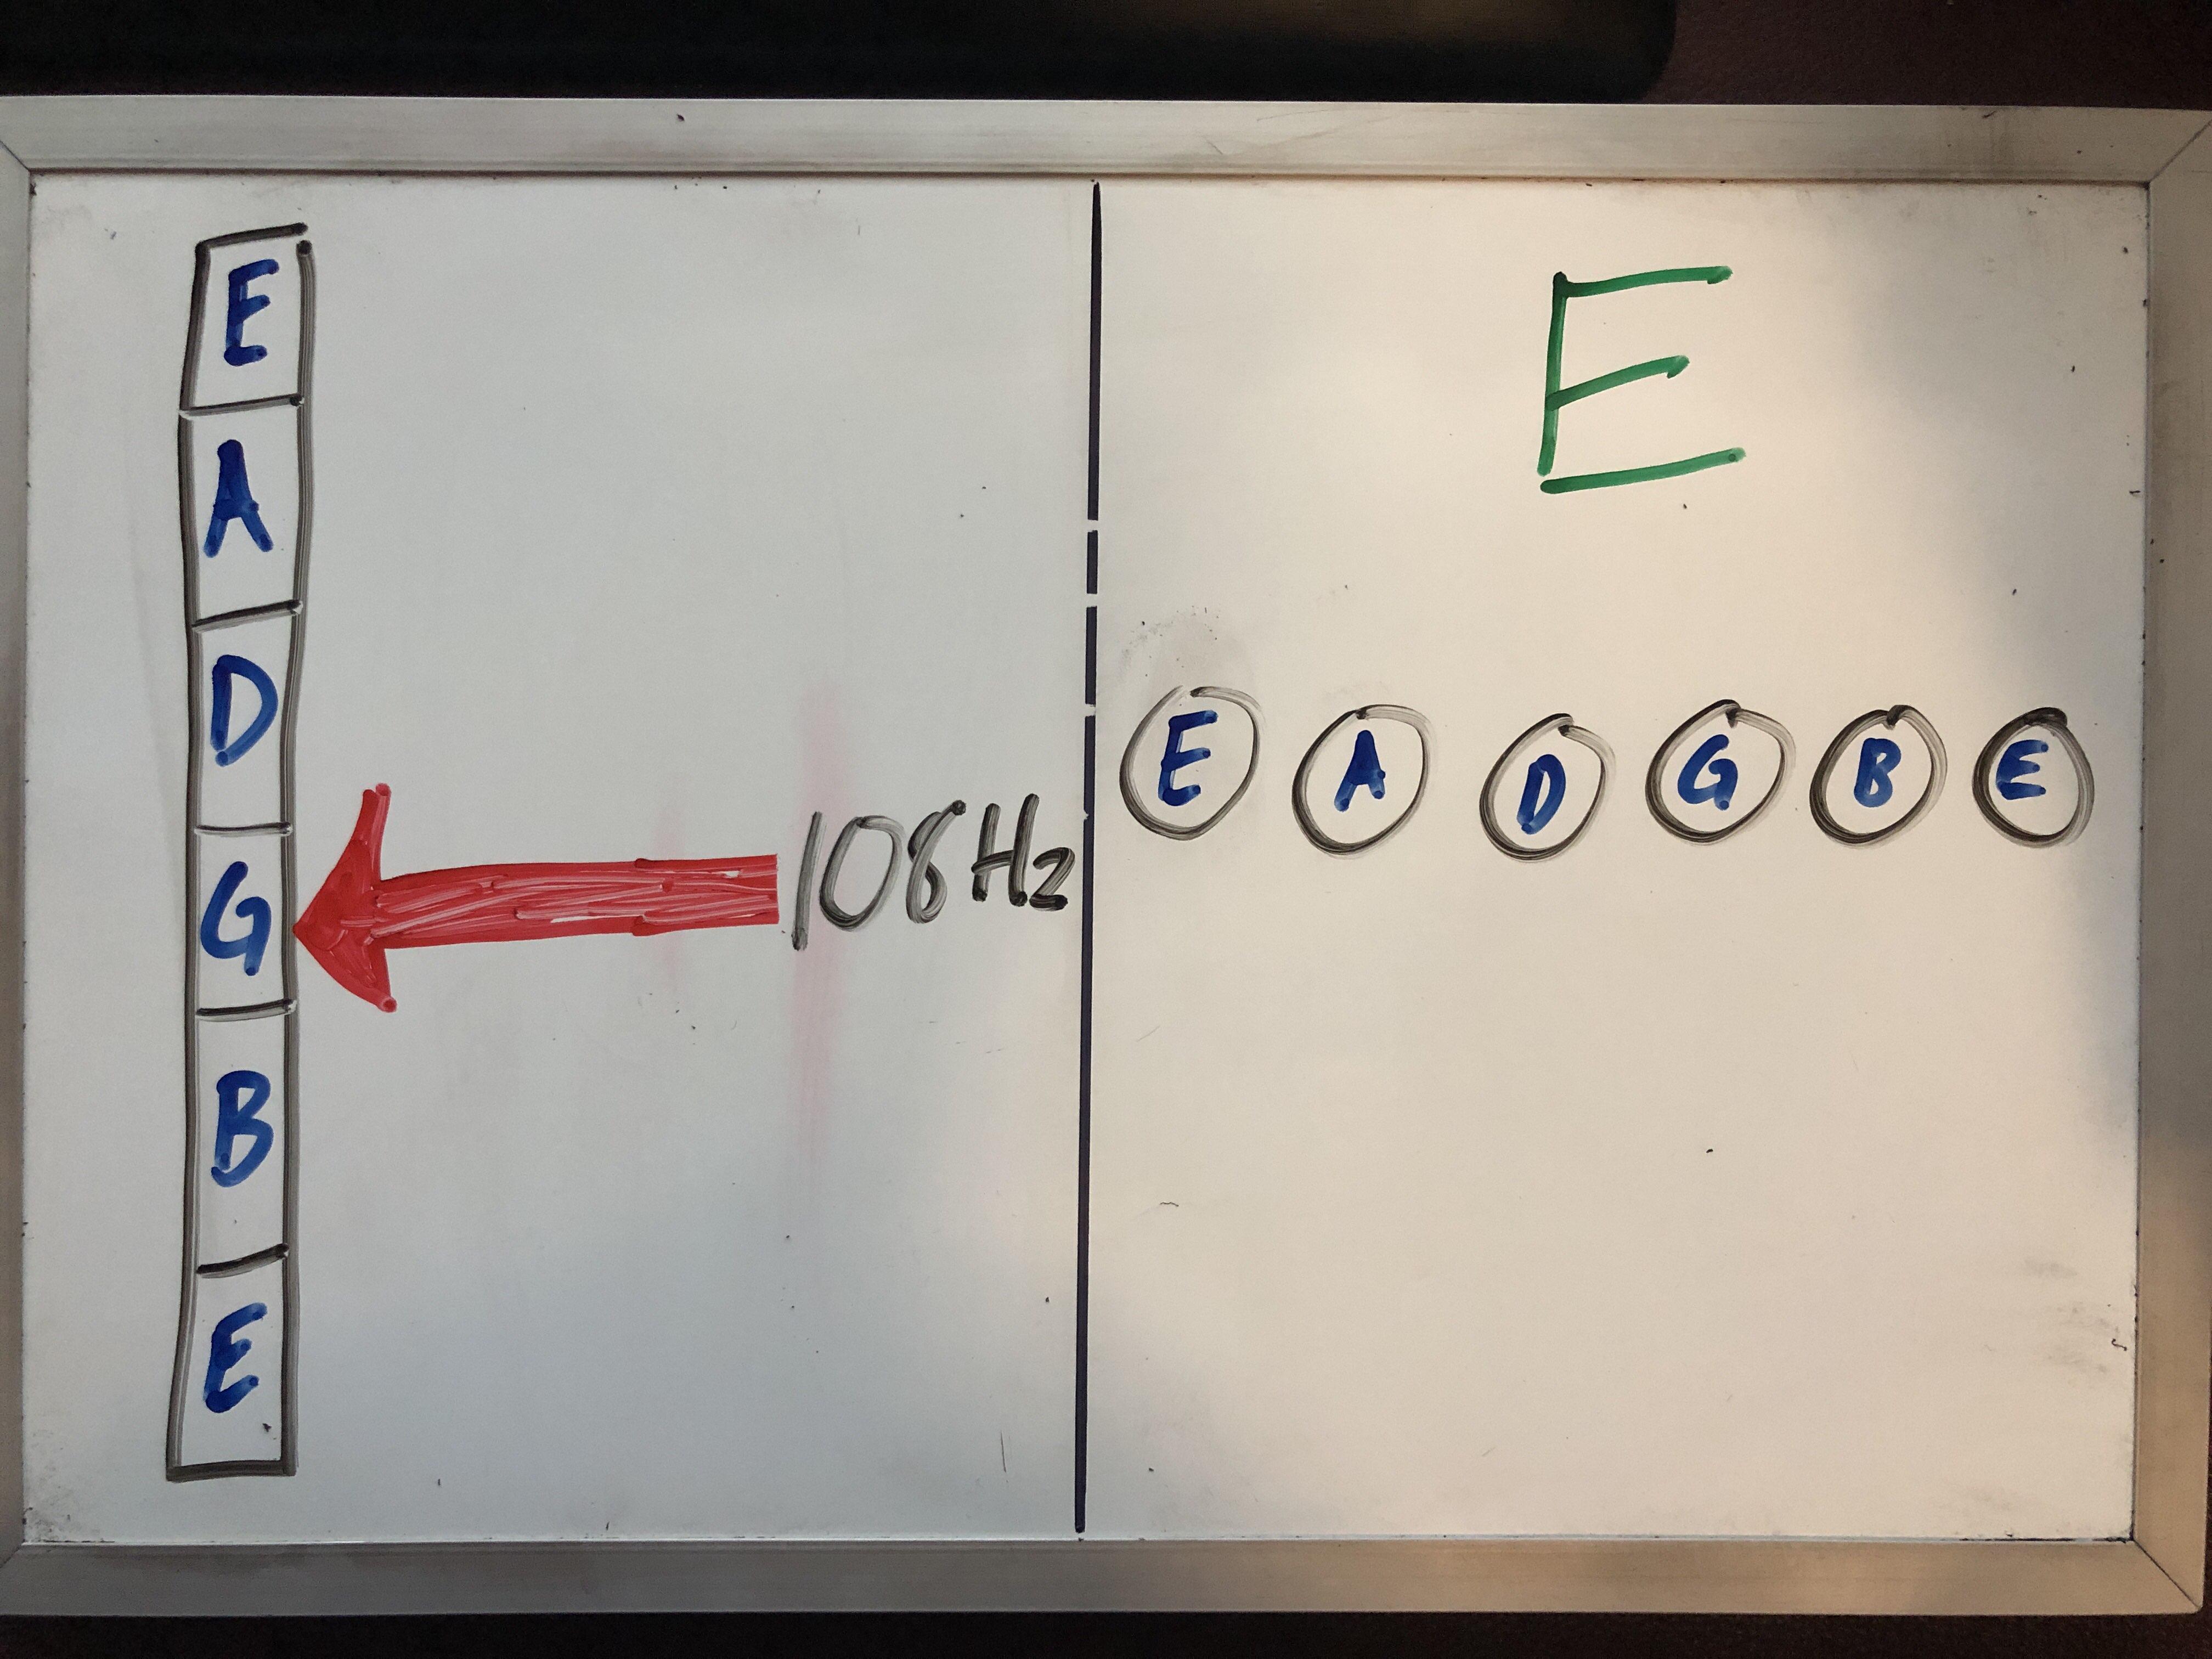 E
A
D
G
B
E
108Hz
E
E A D G B E